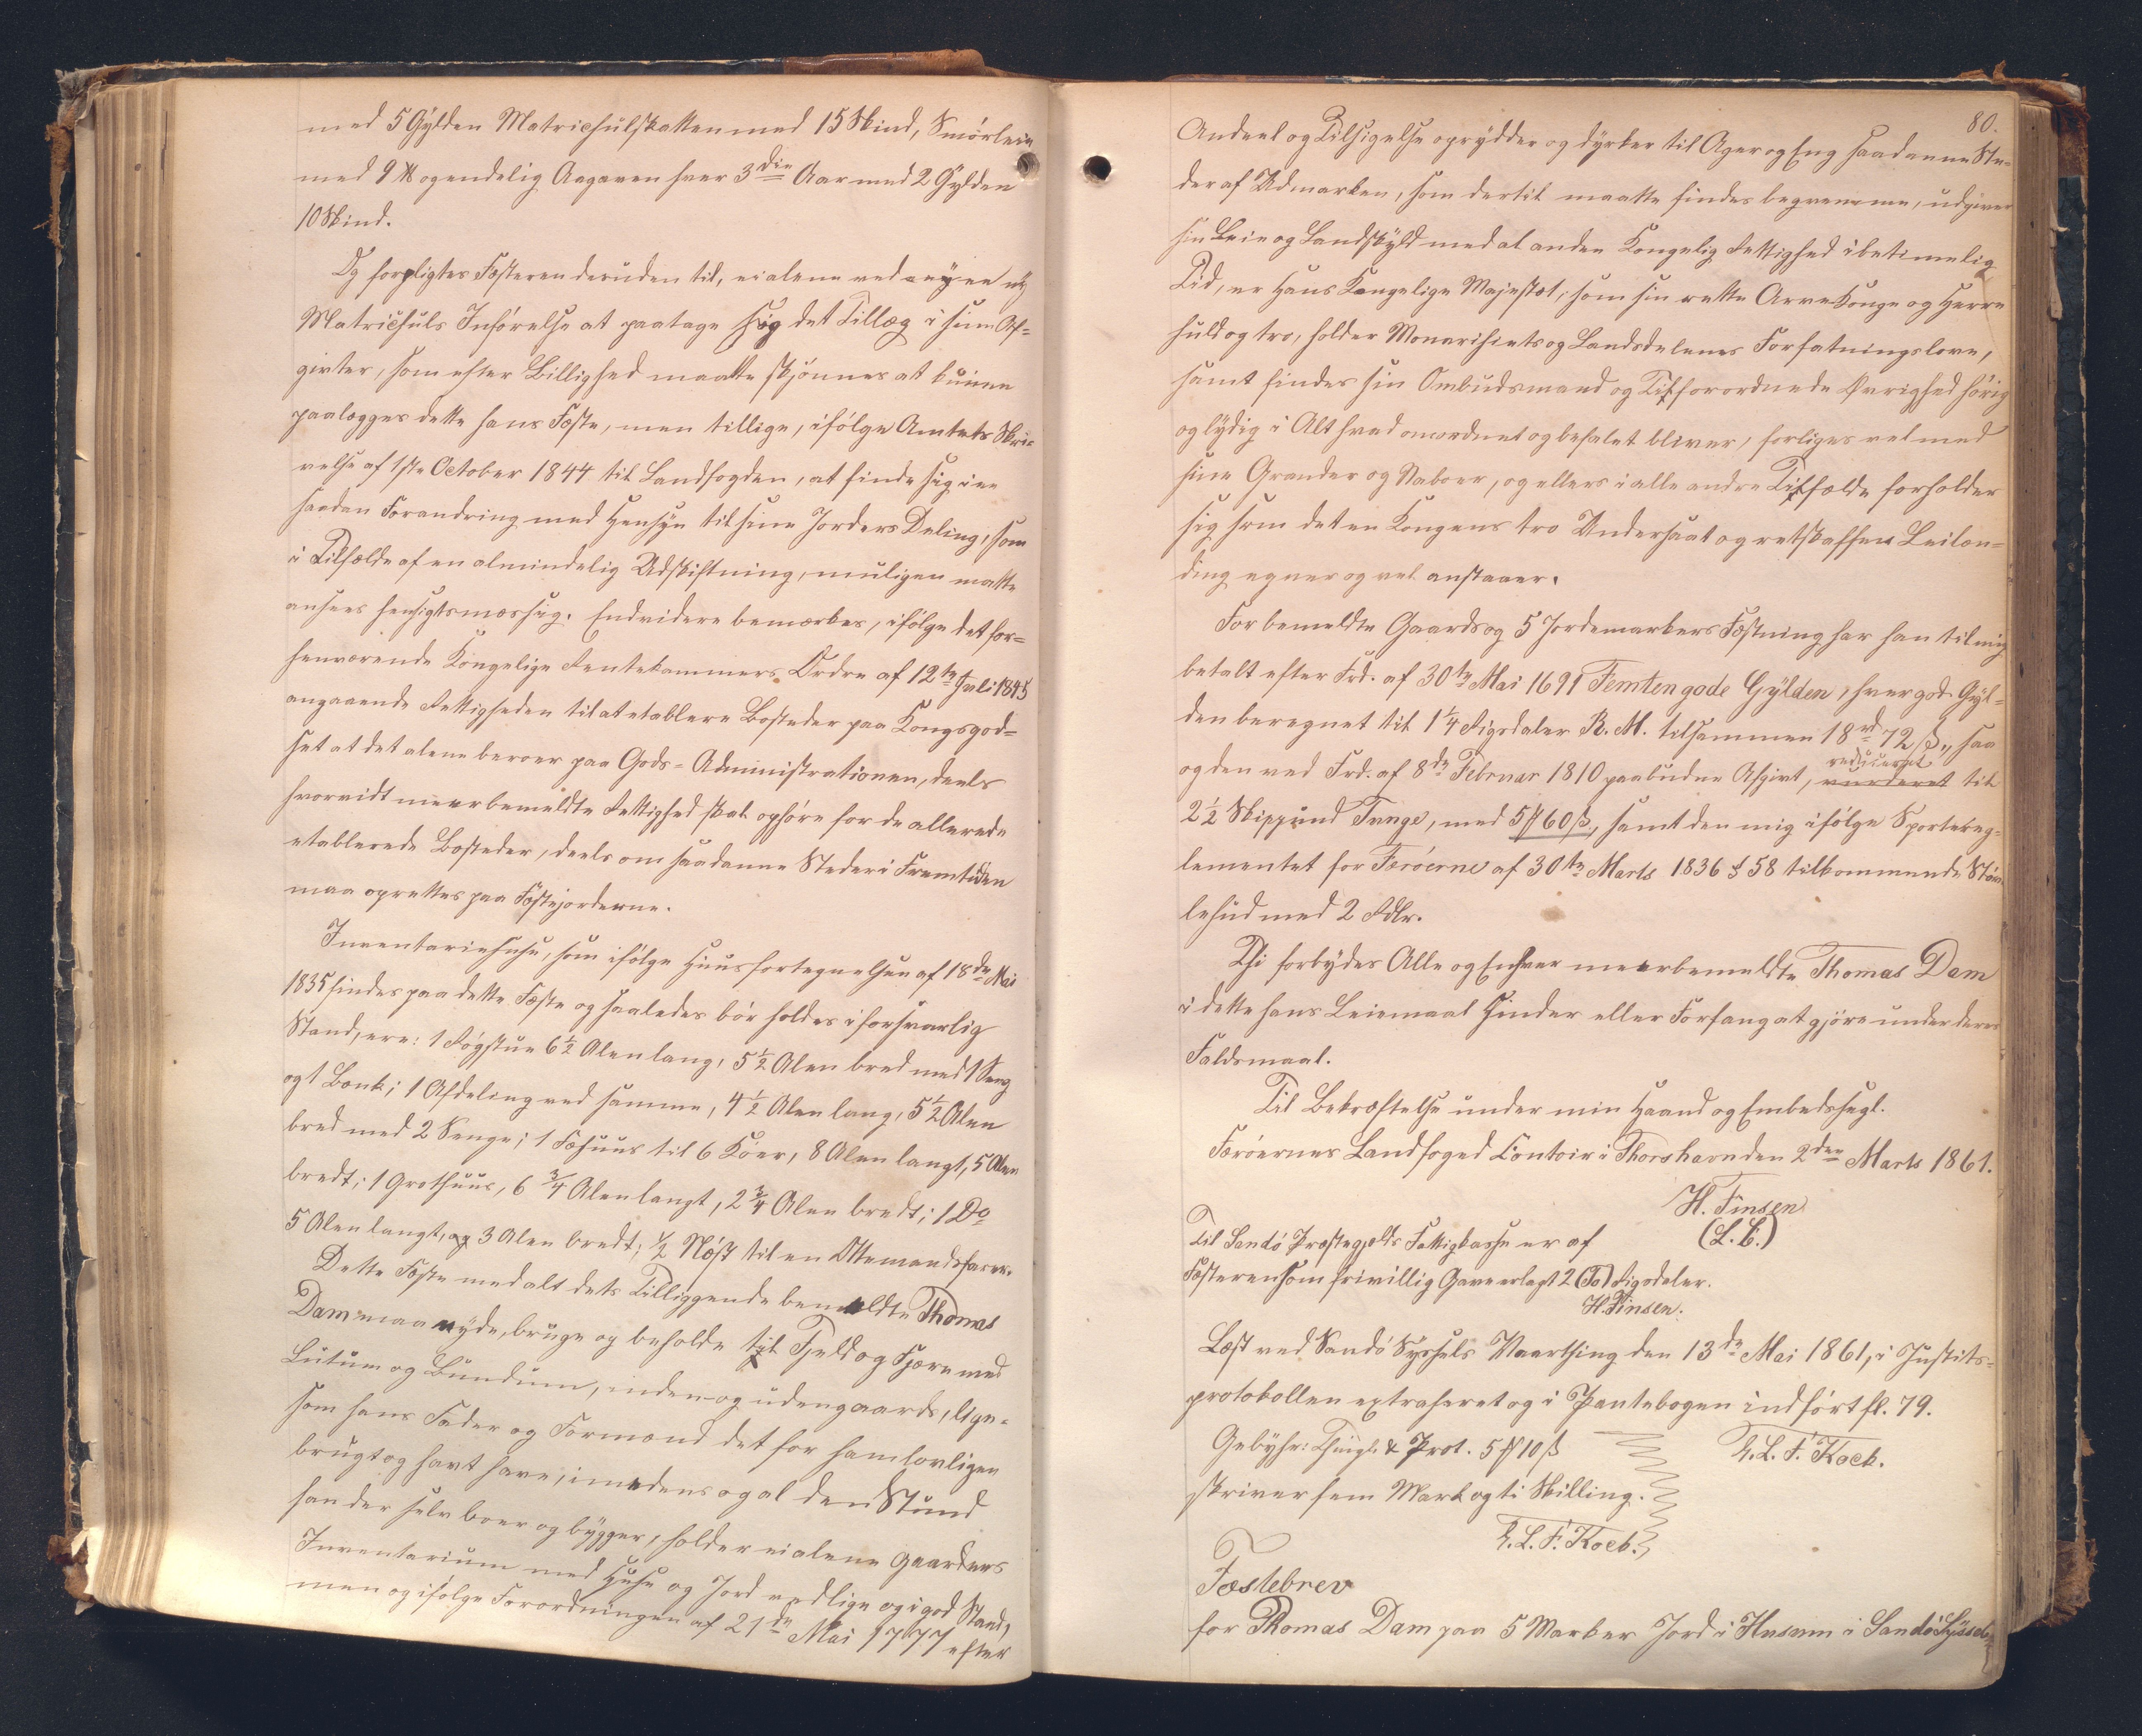 med 5 Gylden Matrichulskatten med 15 Skind, Smørleie
med 9 ℔ og endelig Aagaven hver 3die Aar med 2 Gylden
10 Skind.
Og forpligtes Fæsteren desuden til, ei alene ved en nye
Matrichuls Indførelse at paatage sig det Tillæg i sine Af=
givter, som efter Billighed maatte skjønnes at kunne
paalægges dette hans Fæste, men tillige, ifølge Amtets Skri=
velse af 1ste October 1844 til Landfogden, at finde sig i en
saadan Forandring med Hensyn til sine Jorders Deling, som
i Tilfælde af en almindelig Udskiftning, muligen maatte
ansees hensigtsmæssig. Endvidere bemærkes, ifølge det for=
henværende Kongelige Rentekammers Ordre af 12te Juli 1845
angaaende Rettigheden til at etablere Bosteder paa Kongsgod=
set at det alene beroer paa Gods=Administrationen, deels
hvorvidt meerbemeldte Rettighed skal ophøre for de allerede
etablerede Bosteder, deels om saadanne Steder i Fremtiden
maa oprettes paa Fæstejorderne.
Inventariehuse, som ifølge Huusfortegnelsen af 18de Mai
1835 findes paa dette Fæste og saaledes bør holdes i forsvarlig
Stand, ere: 1 Røgstue 6½ Alen lang, 5½ Alen bred med 1 Seng
og 1 Bænk; 1 Afdeling ved samme, 4½ Alen lang, 5½ Alen
bred med 2 Senge; 1 Fæhuus til 6 Køer, 8 Alen langt, 5 Alen
bredt; 1 Grothuus, 6¾ Alen langt, 2¾ Alen bredt; 1 Do
5 Alen langt, og 3 Alen bredt; ½ Nøst til en Ottemandsfarer.
Dette Fæste med alt dets Tilliggende bemeldte Thomas
Dam maa nyde, bruge og beholde til Fjeld og Fjære med
Lutum og Lundum, inden= og udengaards, lige=
som hans Fader og Formand det for ham lovligen
brugt og havt have, imedens og al den Stund
han der selv boer og bygger, holder ei alene Gaardens
Inventarium med Huse og Jord vedlige og i god Stand,
men og ifølge Forordningen af 21de Mai 1777 efter
80.
Andeel og Tilsigelse oprydder og dyrker til Ager og Eng saadanne Ste=
der af Udmarken, som dertil maatte findes beqvemme, udgiver
sin Leie og Landskyld med al anden Kongelig Rettighed i betimelig
Tid, er Hans Kongelige Majestæt, som sin rette Arve Konge og Herre
huld og tro, holder Monarchiets og Landsdelenes Forfatningslove,
samt findes sin Ombudsmand og Tilforordnede Øvrighed hørig
og lydig i Alt hvad anordnet og befalet bliver, forliges vel med
sine Grander og Naboer, og ellers i alle andre Tilfælde forholder
sig som det en Kongens tro Undersaat og retskaffen Leilæn=
ding egner og vel anstaaer.
For bemeldte Gaards og 5 Jordemarkers Fæstning har han til mig
betalt efter Frd. af 30te Mai 1691 Femten gode Gylden, hver god Gyl=
den beregnet til 1¼ Rigsdaler R. M. tilsammen 18 rd 72 ß, saa
og den ved Frd. af 8de Februar 1810 paabudne Afgivt, vurderet reduceret til
2½ Skippund Tunge, med 5 ₰ 60 ß, samt den mig ifølge Sportelreg=
lementet for Færøerne af 30te Marts 1836 § 58 tilkommende Støv=
lehud med 2 Rdlr.
Thi forbydes Alle og Enhver meerbemeldte Thomas Dam
i dette hans Leiemaal Hinder eller Forfang at gjøre under deres
Faldsmaal.
Til Bekræftelse under min Haand og Embedssegl.
Færøernes Landfoged Contoir i Thorshavn den 2den Marts 1861.
H. Finsen
(L. S.)
Til Sandø Præstegjelds Fattigkasse er af
Fæsteren som frivillig Gave erlagt 2 (To) Rigsdaler.
H. Finsen.
Læst ved Sandø Syssels Vaarthing den 13de Mai 1861, i Justits=
protokollen extraheret og i Pantebogen indført fl. 79.
Gebyhr: Thingl. & Prot. 5 ₰ 10 ß
H. L. F. Koch.
skriver fem Mark og ti Skilling.
H. L. F. Koch.
Fæstebrev
for Thomas Dam paa 5 Marker Jord i Husum i Sandø Syssel